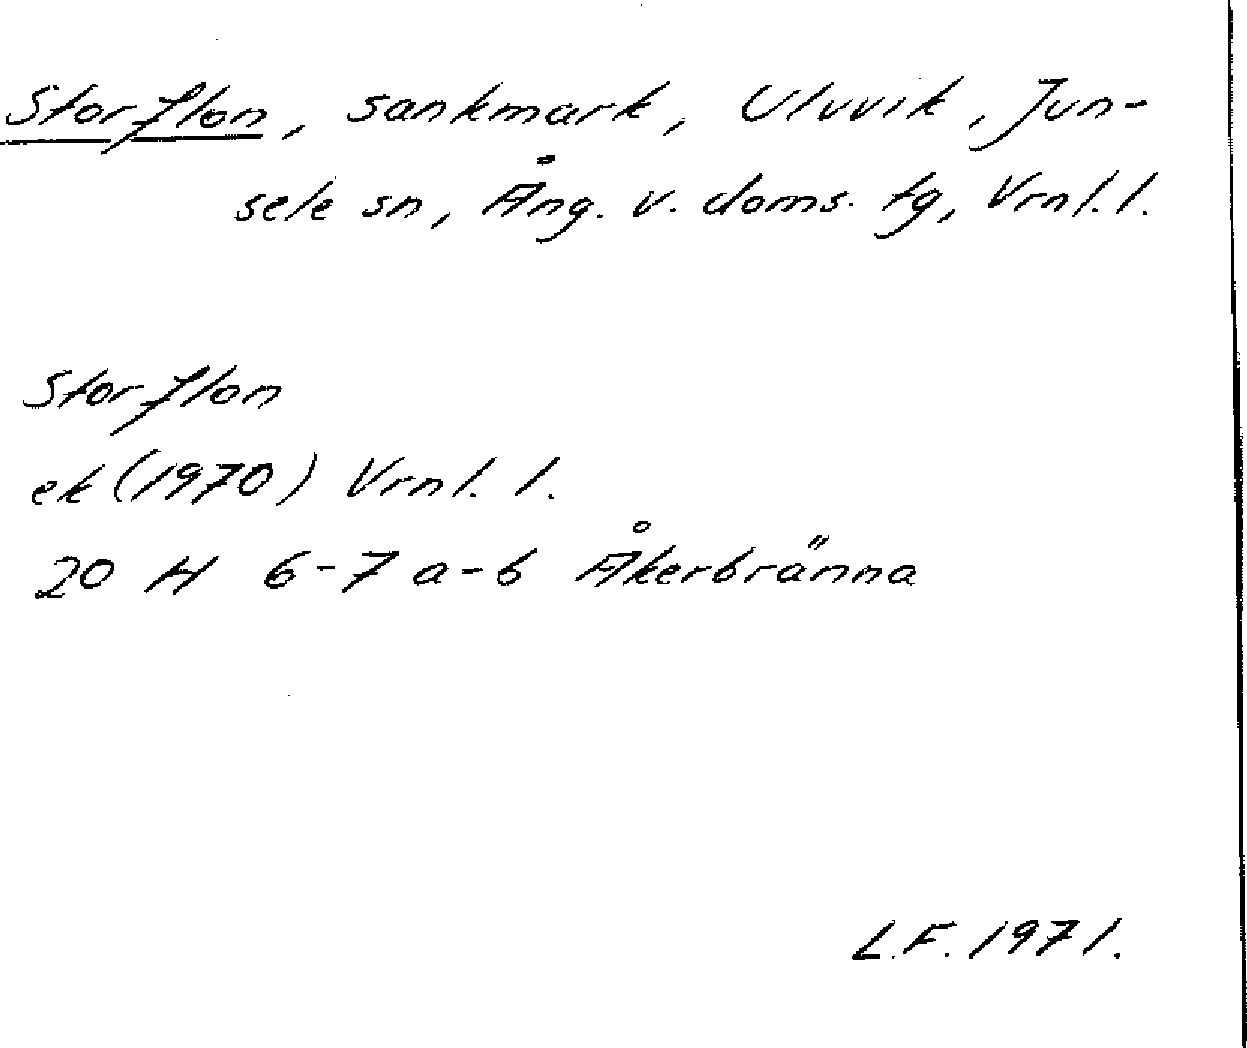 Storflon, sankmark, Uluvik, Jun-
sele sn, Ång. v. doms. tg, Vrnl. l.
Storflon
ek (1970) Vrnl. l.
20 H 6-7 a-b Åkerbränna
L.F. 1971.